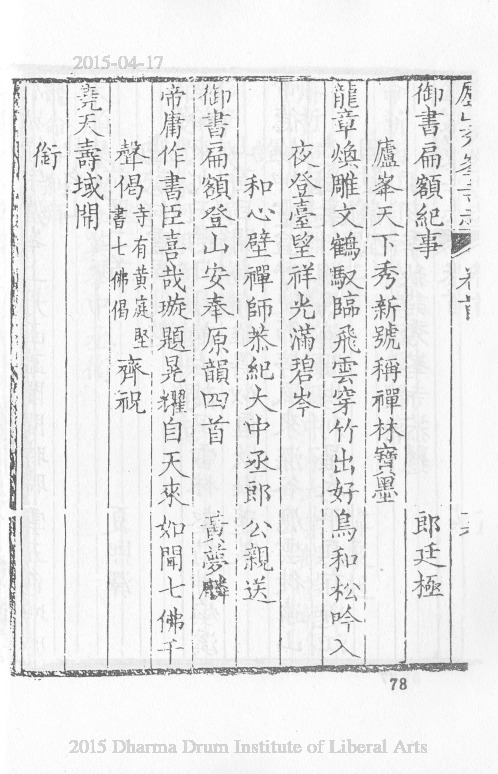 2015-04-17
廬山秀峯寺志 卷首
御書扁額紀事 郎廷極
廬峯天下秀新號稱禪林寶墨
龍章煥雕文鶴馭臨飛雲穿竹出好鳥和松吟入
夜登臺望祥光滿碧岑
和心壁禪師恭紀大中丞郎公親送
御書扁額登山安奉原韻四首 黃夢麟
帝庸作書臣喜哉璇題晃耀自天來如聞七佛千
聲偈寺有黃庭堅書七佛偈齊祝
堯天壽域開
銜
78
2015 Dharma Drum Institute of Liberal Arts